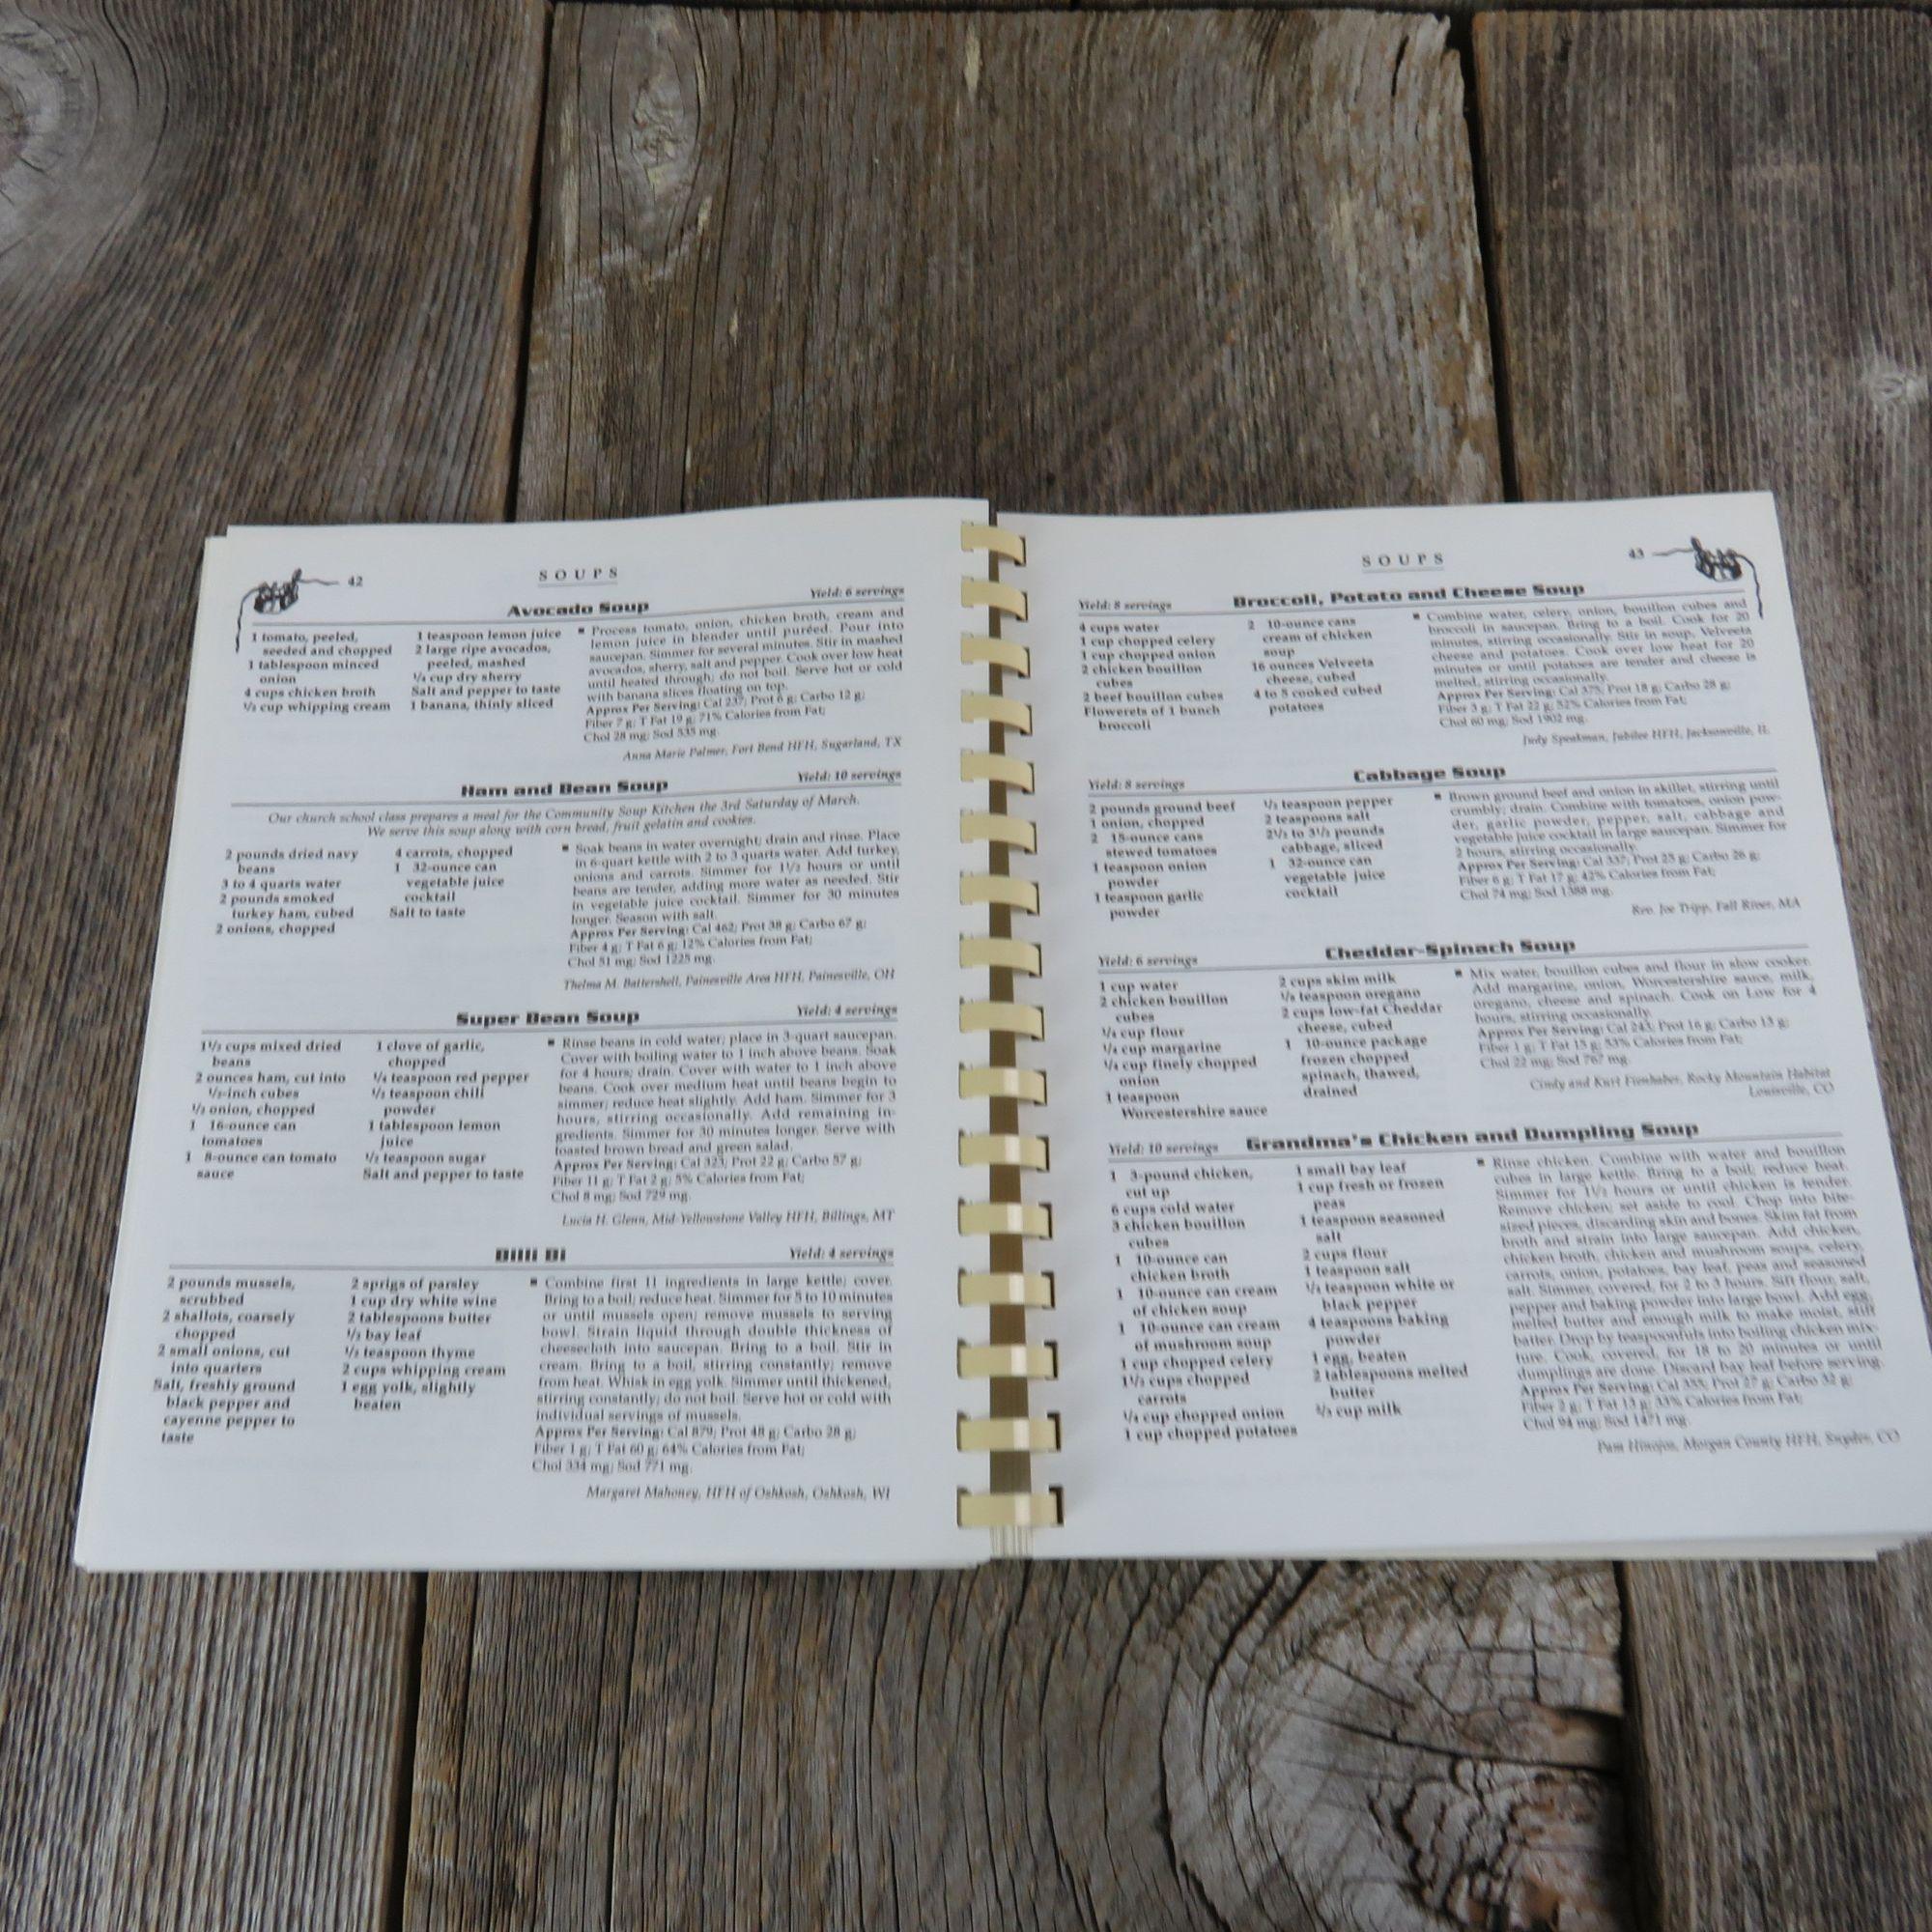 42
SOUPS
Avocado Soup
Yield: 6 servings
1 tomato, peeled,
seeded and chopped
1 tablespoon minced
onion
4 cups chicken broth
1/2 cup whipping cream
1 teaspoon lemon juice
2 large ripe avocados,
peeled, mashed
1/4 cup dry sherry
Salt and pepper to taste
1 banana, thinly sliced
■ Process tomato, onion, chicken broth, cream and
lemon juice in blender until puréed. Pour into
saucepan. Simmer for several minutes. Stir in mashed
avocados, sherry, salt and pepper. Cook over low heat
until heated through; do not boil. Serve hot or cold
with banana slices floating on top.
Approx Per Serving: Cal 237; Prot 6 g; Carbo 12 g;
Fiber 7 g; T Fat 19 g; 71% Calories from Fat;
Chol 28 mg; Sod 535 mg.
Anna Marie Palmer, Fort Bend HFH, Sugarland, TX
Ham and Bean Soup
Yield: 10 servings
Our church school class prepares a meal for the Community Soup Kitchen the 3rd Saturday of March.
We serve this soup along with corn bread, fruit gelatin and cookies.
2 pounds dried navy
beans
3 to 4 quarts water
2 pounds smoked
turkey ham, cubed
2 onions, chopped
4 carrots, chopped
1 32-ounce can
vegetable juice
cocktail
Salt to taste
■ Soak beans in water overnight; drain and rinse. Place
in 6-quart kettle with 2 to 3 quarts water. Add turkey,
onions and carrots. Simmer for 1 1/2 hours or until
beans are tender, adding more water as needed. Stir
in vegetable juice cocktail. Simmer for 30 minutes
longer. Season with salt.
Approx Per Serving: Cal 462; Prot 38 g; Carbo 67 g;
Fiber 4 g; T Fat 6 g; 12% Calories from Fat;
Chol 51 mg; Sod 1225 mg.
Thelma M. Battershell, Painesville Area HFH, Painesville, OH
Super Bean Soup
Yield: 4 servings
1 1/2 cups mixed dried
beans
2 ounces ham, cut into
1/2-inch cubes
1/2 onion, chopped
1 16-ounce can
tomatoes
1 8-ounce can tomato
sauce
1 clove of garlic,
chopped
1/4 teaspoon red pepper
1/2 teaspoon chili
powder
1 tablespoon lemon
juice
1/2 teaspoon sugar
Salt and pepper to taste
■ Rinse beans in cold water; place in 3-quart saucepan.
Cover with boiling water to 1 inch above beans. Soak
for 4 hours; drain. Cover with water to 1 inch above
beans. Cook over medium heat until beans begin to
simmer; reduce heat slightly. Add ham. Simmer for 3
hours, stirring occasionally. Add remaining in-
gredients. Simmer for 30 minutes longer. Serve with
toasted brown bread and green salad.
Approx Per Serving: Cal 323; Prot 22 g; Carbo 57 g;
Fiber 11 g; T Fat 2 g; 5% Calories from Fat;
Chol 8 mg; Sod 729 mg.
Lucia H. Glenn, Mid-Yellowstone Valley HFH, Billings, MT
Billi Bi
Yield: 4 servings
2 pounds mussels,
scrubbed
2 shallots, coarsely
chopped
2 small onions, cut
into quarters
Salt, freshly ground
black pepper and
cayenne pepper to
taste
2 sprigs of parsley
1 cup dry white wine
2 tablespoons butter
1/2 bay leaf
1/2 teaspoon thyme
2 cups whipping cream
1 egg yolk, slightly
beaten
■ Combine first 11 ingredients in large kettle; cover.
Bring to a boil; reduce heat. Simmer for 5 to 10 minutes
or until mussels open; remove mussels to serving
bowl. Strain liquid through double thickness of
cheesecloth into saucepan. Bring to a boil. Stir in
cream. Bring to a boil, stirring constantly; remove
from heat. Whisk in egg yolk. Simmer until thickened,
stirring constantly; do not boil. Serve hot or cold with
individual servings of mussels.
Approx Per Serving: Cal 879; Prot 48 g; Carbo 28 g;
Fiber 1 g; T Fat 60 g; 64% Calories from Fat;
Chol 334 mg; Sod 771 mg.
Margaret Mahoney, HFH of Oshkosh, Oshkosh, WI
SOUPS
43
Yield: 8 servings
Broccoli, Potato and Cheese Soup
4 cups water
1 cup chopped celery
1 cup chopped onion
2 chicken bouillon
cubes
2 beef bouillon cubes
Flowerets of 1 bunch
broccoli
2 10-ounce cans
cream of chicken
soup
16 ounces Velveeta
cheese, cubed
4 to 5 cooked cubed
potatoes
■ Combine water, celery, onion, bouillon cubes and
broccoli in saucepan. Bring to a boil. Cook for 20
minutes, stirring occasionally. Stir in soup, Velveeta
cheese and potatoes. Cook over low heat for 20
minutes or until potatoes are tender and cheese is
melted, stirring occasionally.
Approx Per Serving: Cal 375; Prot 18 g; Carbo 28 g;
Fiber 3 g; T Fat 22 g; 52% Calories from Fat;
Chol 60 mg; Sod 1902 mg.
Judy Speakman, Jubilee HFH, Jacksonville, IL
Yield: 8 servings
Cabbage Soup
2 pounds ground beef
1 onion, chopped
2 15-ounce cans
stewed tomatoes
1 teaspoon onion
powder
1 teaspoon garlic
powder
1/2 teaspoon pepper
2 teaspoons salt
2 1/2 to 3 1/2 pounds
cabbage, sliced
1 32-ounce can
vegetable juice
cocktail
■ Brown ground beef and onion in skillet, stirring until
crumbly; drain. Combine with tomatoes, onion pow-
der, garlic powder, pepper, salt, cabbage and
vegetable juice cocktail in large saucepan. Simmer for
2 hours, stirring occasionally.
Approx Per Serving: Cal 337; Prot 25 g; Carbo 26 g;
Fiber 6 g; T Fat 17 g; 42% Calories from Fat;
Chol 74 mg; Sod 1388 mg.
Rev. Joe Tripp, Fall River, MA
Yield: 6 servings
Cheddar-Spinach Soup
1 cup water
2 chicken bouillon
cubes
1/4 cup flour
1/4 cup margarine
1/4 cup finely chopped
onion
1 teaspoon
Worcestershire sauce
2 cups skim milk
1/2 teaspoon oregano
2 cups low-fat Cheddar
cheese, cubed
1 10-ounce package
frozen chopped
spinach, thawed,
drained
■ Mix water, bouillon cubes and flour in slow cooker.
Add margarine, onion, Worcestershire sauce, milk,
oregano, cheese and spinach. Cook on Low for 4
hours, stirring occasionally.
Approx Per Serving: Cal 243; Prot 16 g; Carbo 13 g;
Fiber 1 g; T Fat 15 g; 53% Calories from Fat;
Chol 22 mg; Sod 767 mg.
Cindy and Kurt Rocky Mountain Habitat
Louisville, CO
Yield: 10 servings
Grandma's Chicken and Dumpling Soup
1 3-pound chicken,
cut up
6 cups cold water
3 chicken bouillon
cubes
1 10-ounce can
chicken broth
1 10-ounce can cream
of chicken soup
1 10-ounce can cream
of mushroom soup
1 cup chopped celery
1 1/2 cups chopped
carrots
cup chopped onion
1 cup chopped potatoes
1 small bay leaf
1 cup fresh or frozen
peas
1 teaspoon seasoned
salt
2 cups flour
1 teaspoon salt
teaspoon white or
black pepper
4 teaspoons baking
powder
1 egg, beaten
2 tablespoons melted
butter
cup milk
■ Rinse chicken. Combine with water and bouillon
cubes in large kettle. Bring to a boil; reduce heat.
Simmer for 1 1/2 hours or until chicken is tender.
Remove chicken; set aside to cool. Chop into bite-
sized pieces, discarding skin and bones. Skim fat from
broth and strain into large saucepan. Add chicken,
chicken broth, chicken and mushroom soups, celery,
carrots, onion, potatoes, bay leaf, peas and seasoned
salt. Simmer, covered, for 2 to 3 hours. Sift flour, salt,
pepper and baking powder into large bowl. Add egg,
melted butter and enough milk to make moist, stiff
batter. Drop by teaspoonfuls into boiling chicken mix-
ture. Cook, covered, for 18 to 20 minutes or until
dumplings are done. Discard bay leaf before serving.
Approx Per Serving: Cal 355; Prot 27 g; Carbo 32 g;
Fiber 2 g; T Fat 13 g; 33% Calories from Fat;
Chol 94 mg; Sod 1471 mg.
Pam Hinojos, Morgan County HFH, Snyder, CO